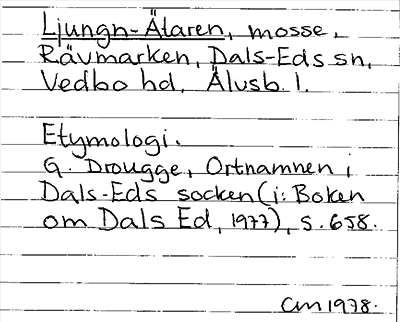 Ljungn-Älaren, mosse,
Rävmarken, Dals-Eds sn,
Vedbo hd, Älvsb. l.
Etymologi.
G. Drougge, Ortnamnen i
Dals-Eds socken (i: Boken
om Dals Ed, 1977), s. 658.
CM 1978.